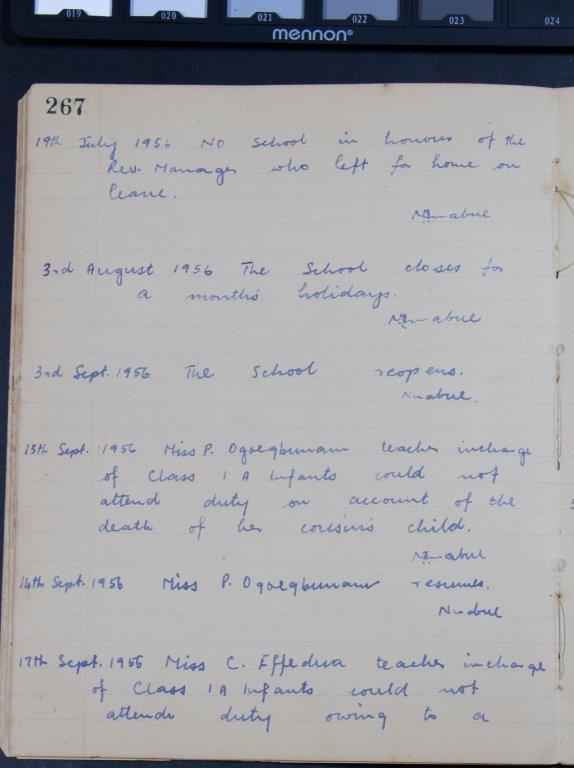 019 020 021 022 023 024
mennon®
267
19th July 1956 No School in honour of the
Rev. Manager who left for home on
leave.
3rd August 1956 The School closes for
a month's holidays.
3rd Sept. 1956 The School reopens.
13th Sept. 1956 Miss P. Ogoegbunam teacher incharge
of Class 1 A Infants could not
attend duty on account of the
death of her cousin's child.
14th Sept. 1956 Miss P. Ogoegbunam resumes.
17th Sept. 1956 Miss C. Effedua teacher incharge
of Class 1 A Infants could not
attend duty owing to a